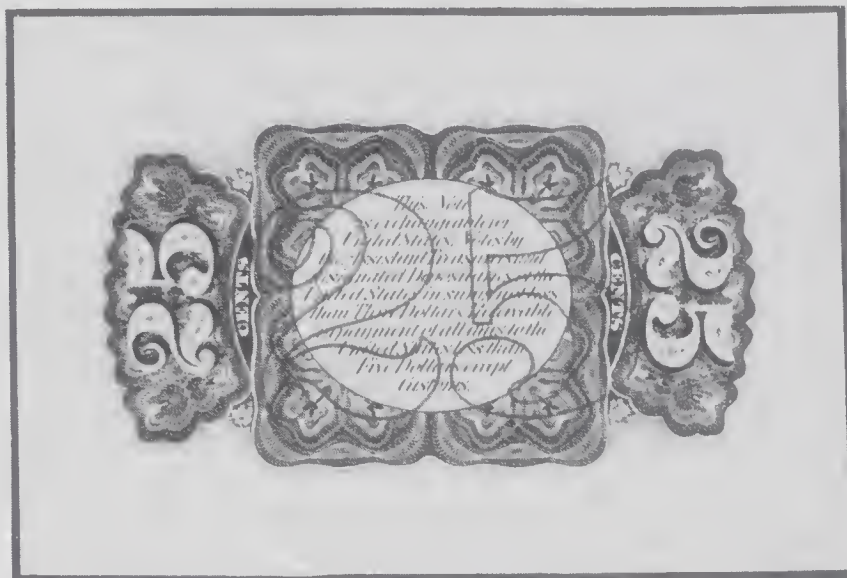 25
CENTS
This Note
is exchangeable for
United States Notes by
Assistant Treasurers and
designated Depositaries of the
United States in sums not less
than Three Dollars. Receivable
payment of all dues to the
United States less than
Five Dollars except
Customs.
25
CENTS
25